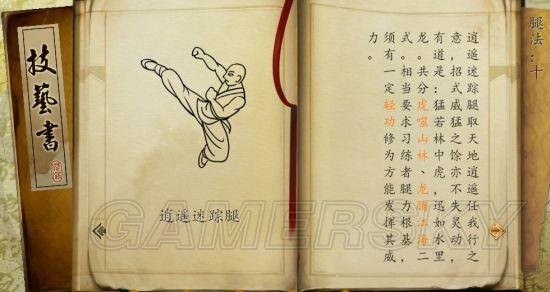 技藝書
逍遥迷踪腿
腿法：十
逍遥迷踪腿取天地逍遥任我行之
意，招式威猛之馀亦不失灵动，
有道是：猛若林中虎，迅如水里
龙。共分虎啸山林、龙腾江海二
式。相当要求习练者腿力根基，
须有一定轻功修为方能发挥其威
力。
GAMERSKY